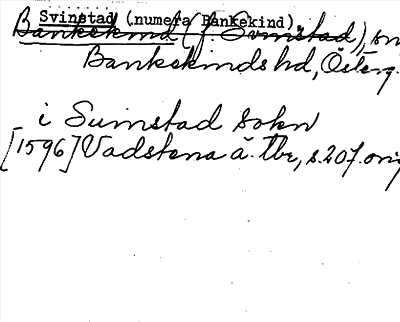 Svinstad (numera Bankekind).
Bankekind (f. Svinstad), sn
Bankekinds hd, Österg.
i Suinstad Sokn
[1596] Vadstena ä. Tbr, s.207. orig